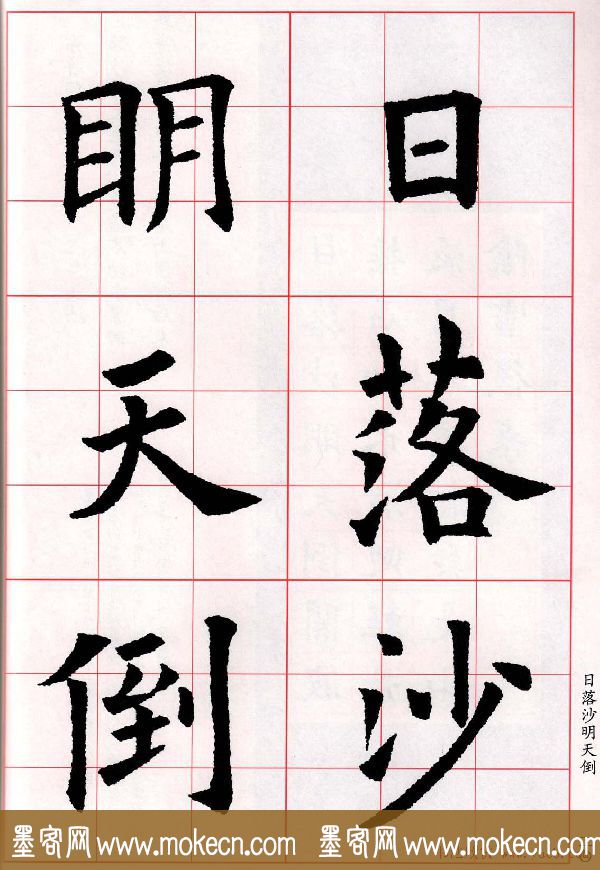 日落沙
明天倒
日落沙明天倒
墨客网 www.mokecn.com 墨客网 www.mokecn.com